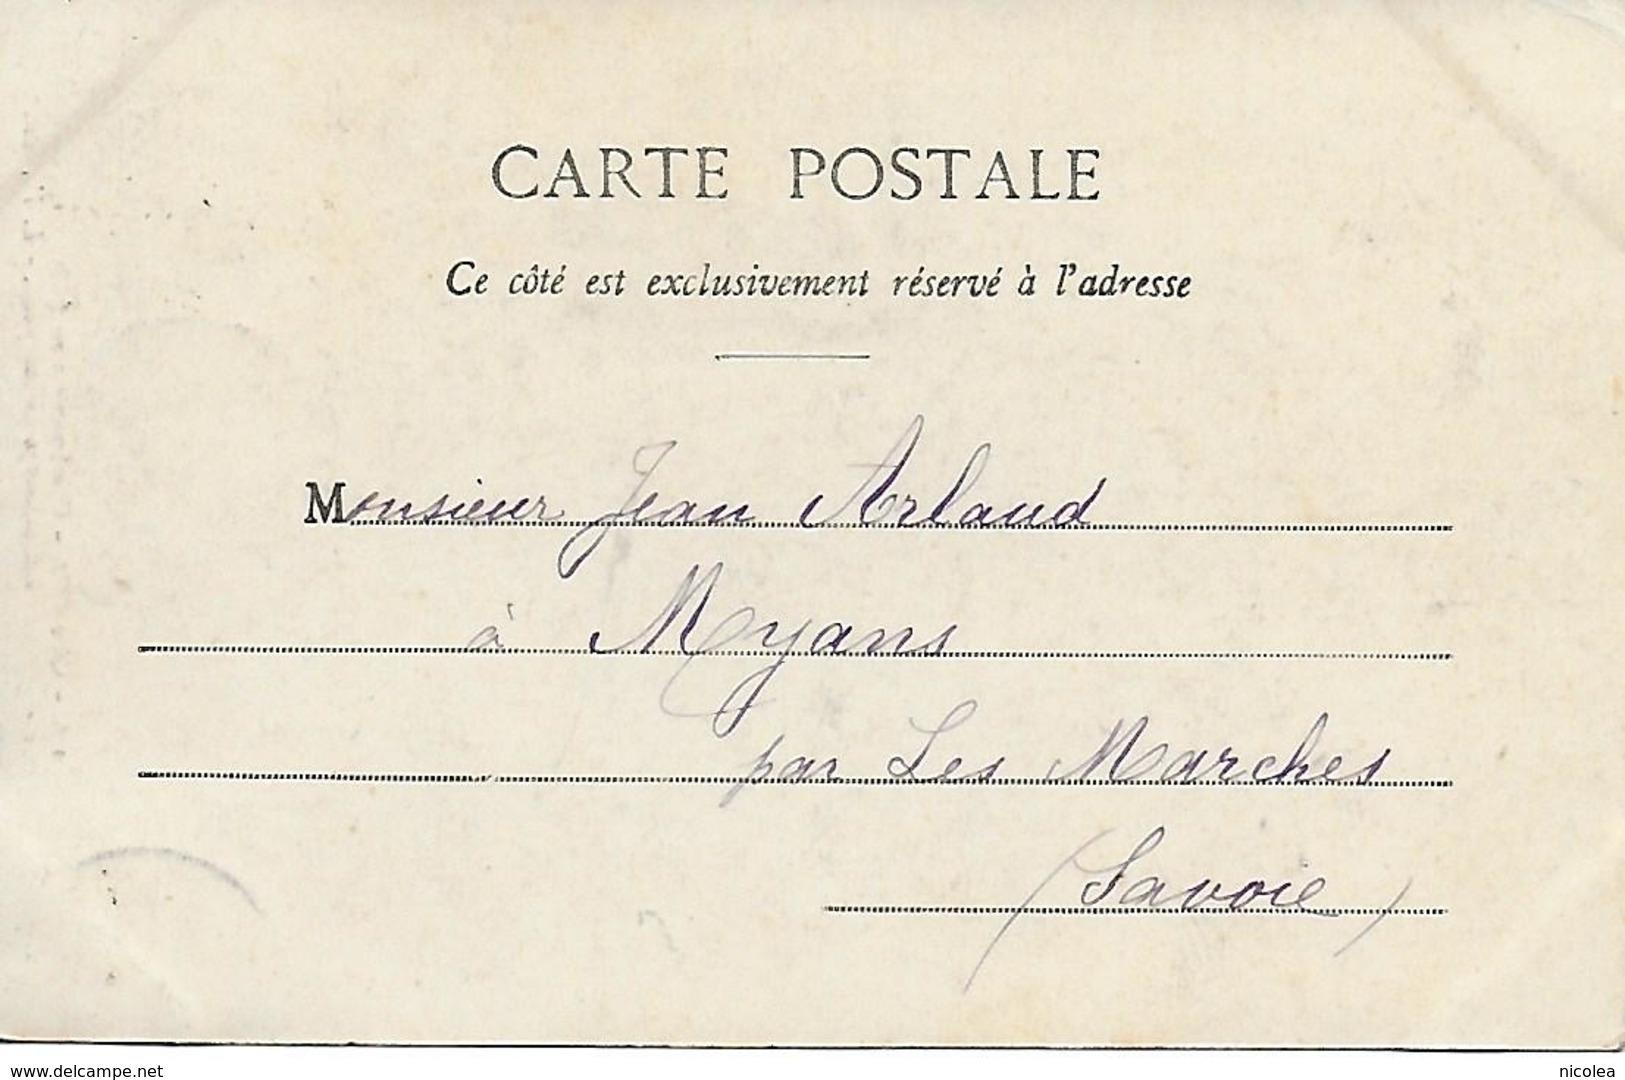 CARTE POSTALE
Ce côté est exclusivement réservé à l'adresse
Monsieur Jean Arlaud
à Myans
par Les Marches
(Savoie)
www.delcampe.net
nicolea